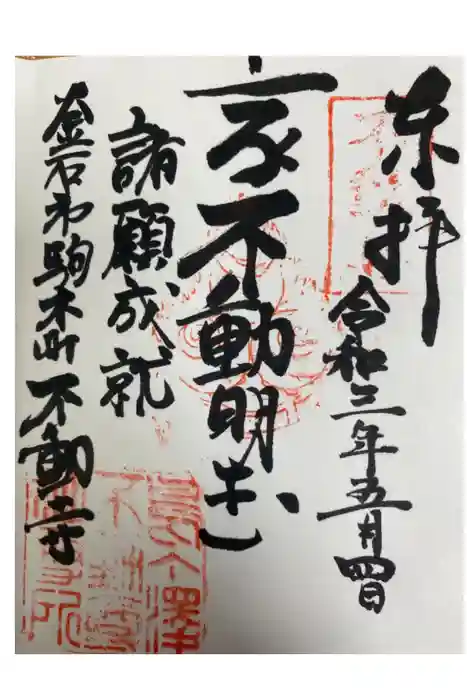 奉拝
令和三年五月四日
不動明
諸願成就
釜石市駒木町不動寺